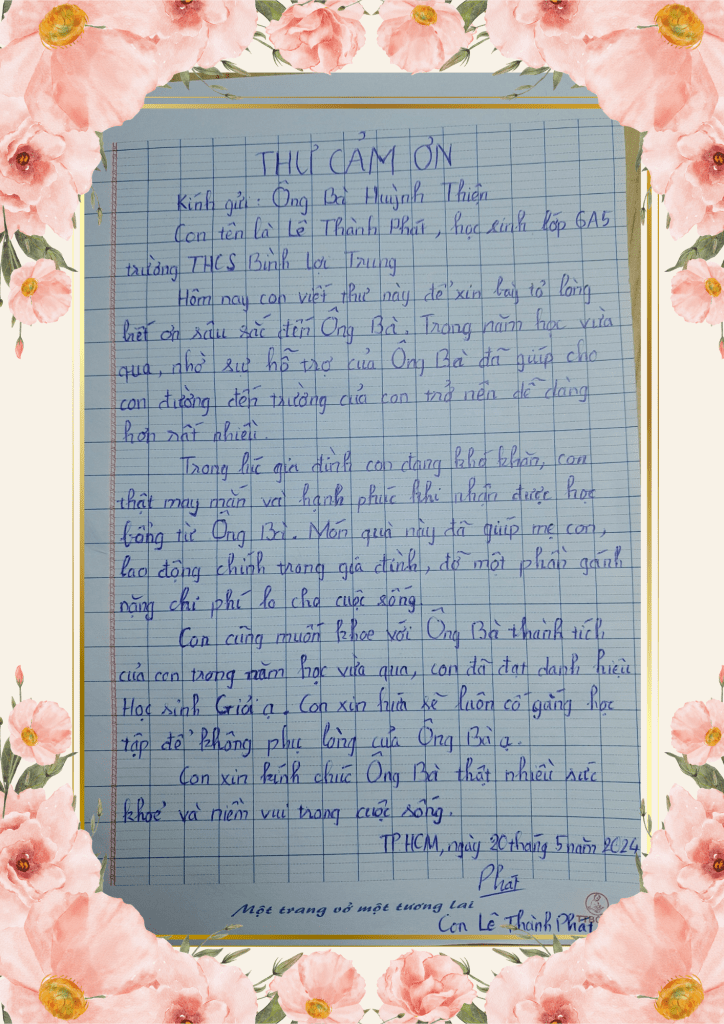 THƯ CẢM ƠN
Kính gửi: Ông Bà Huỳnh Thiện
Con tên là Lê Thành Phát, học sinh lớp 6A5
trường THCS Bình Lợi Trung
Hôm nay con viết thư này để xin bày tỏ lòng
biết ơn sâu sắc đến Ông Bà. Trong năm học vừa
qua, nhờ sự hỗ trợ của Ông Bà đã giúp cho
con đường đến trường của con trở nên dễ dàng
hơn rất nhiều.
Trong lúc gia đình con đang khó khăn, con
thật may mắn và hạnh phúc khi nhận được học
bổng từ Ông Bà. Món quà này đã giúp mẹ con,
lao động chính trong gia đình, đỡ một phần gánh
nặng chi phí lo cho cuộc sống
Con cũng muốn khoe với Ông Bà thành tích
của con trong năm học vừa qua, con đã đạt danh hiệu
Học sinh Giỏi ạ. Con xin hứa sẽ luôn cố gắng học
tập để không phụ lòng của Ông Bà ạ.
Con xin kính chúc Ông Bà thật nhiều sức
khoẻ và niềm vui trong cuộc sống.
TPHCM, ngày 20 tháng 5 năm 2024
Phát
Một trang vở một tương lai
Con Lê Thành Phát